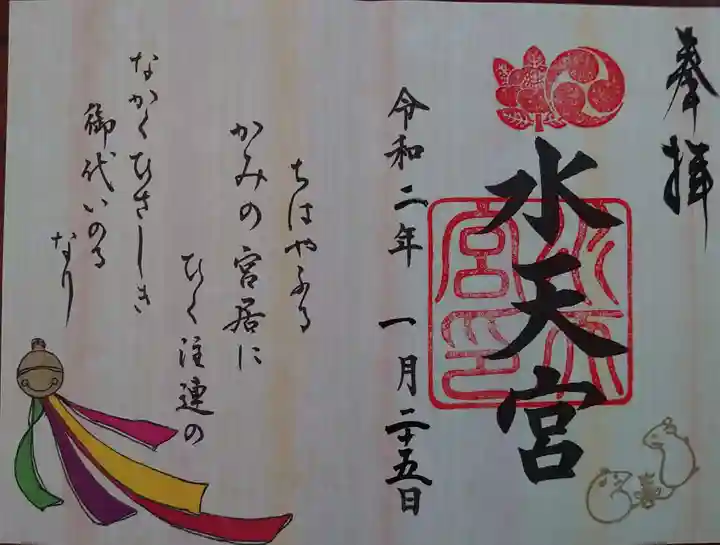 奉拝
水天宮
令和二年 一月二十五日
ちはやふる
かみの宮居に
ひく注連の
なかくひさしき
御代いのる
なり